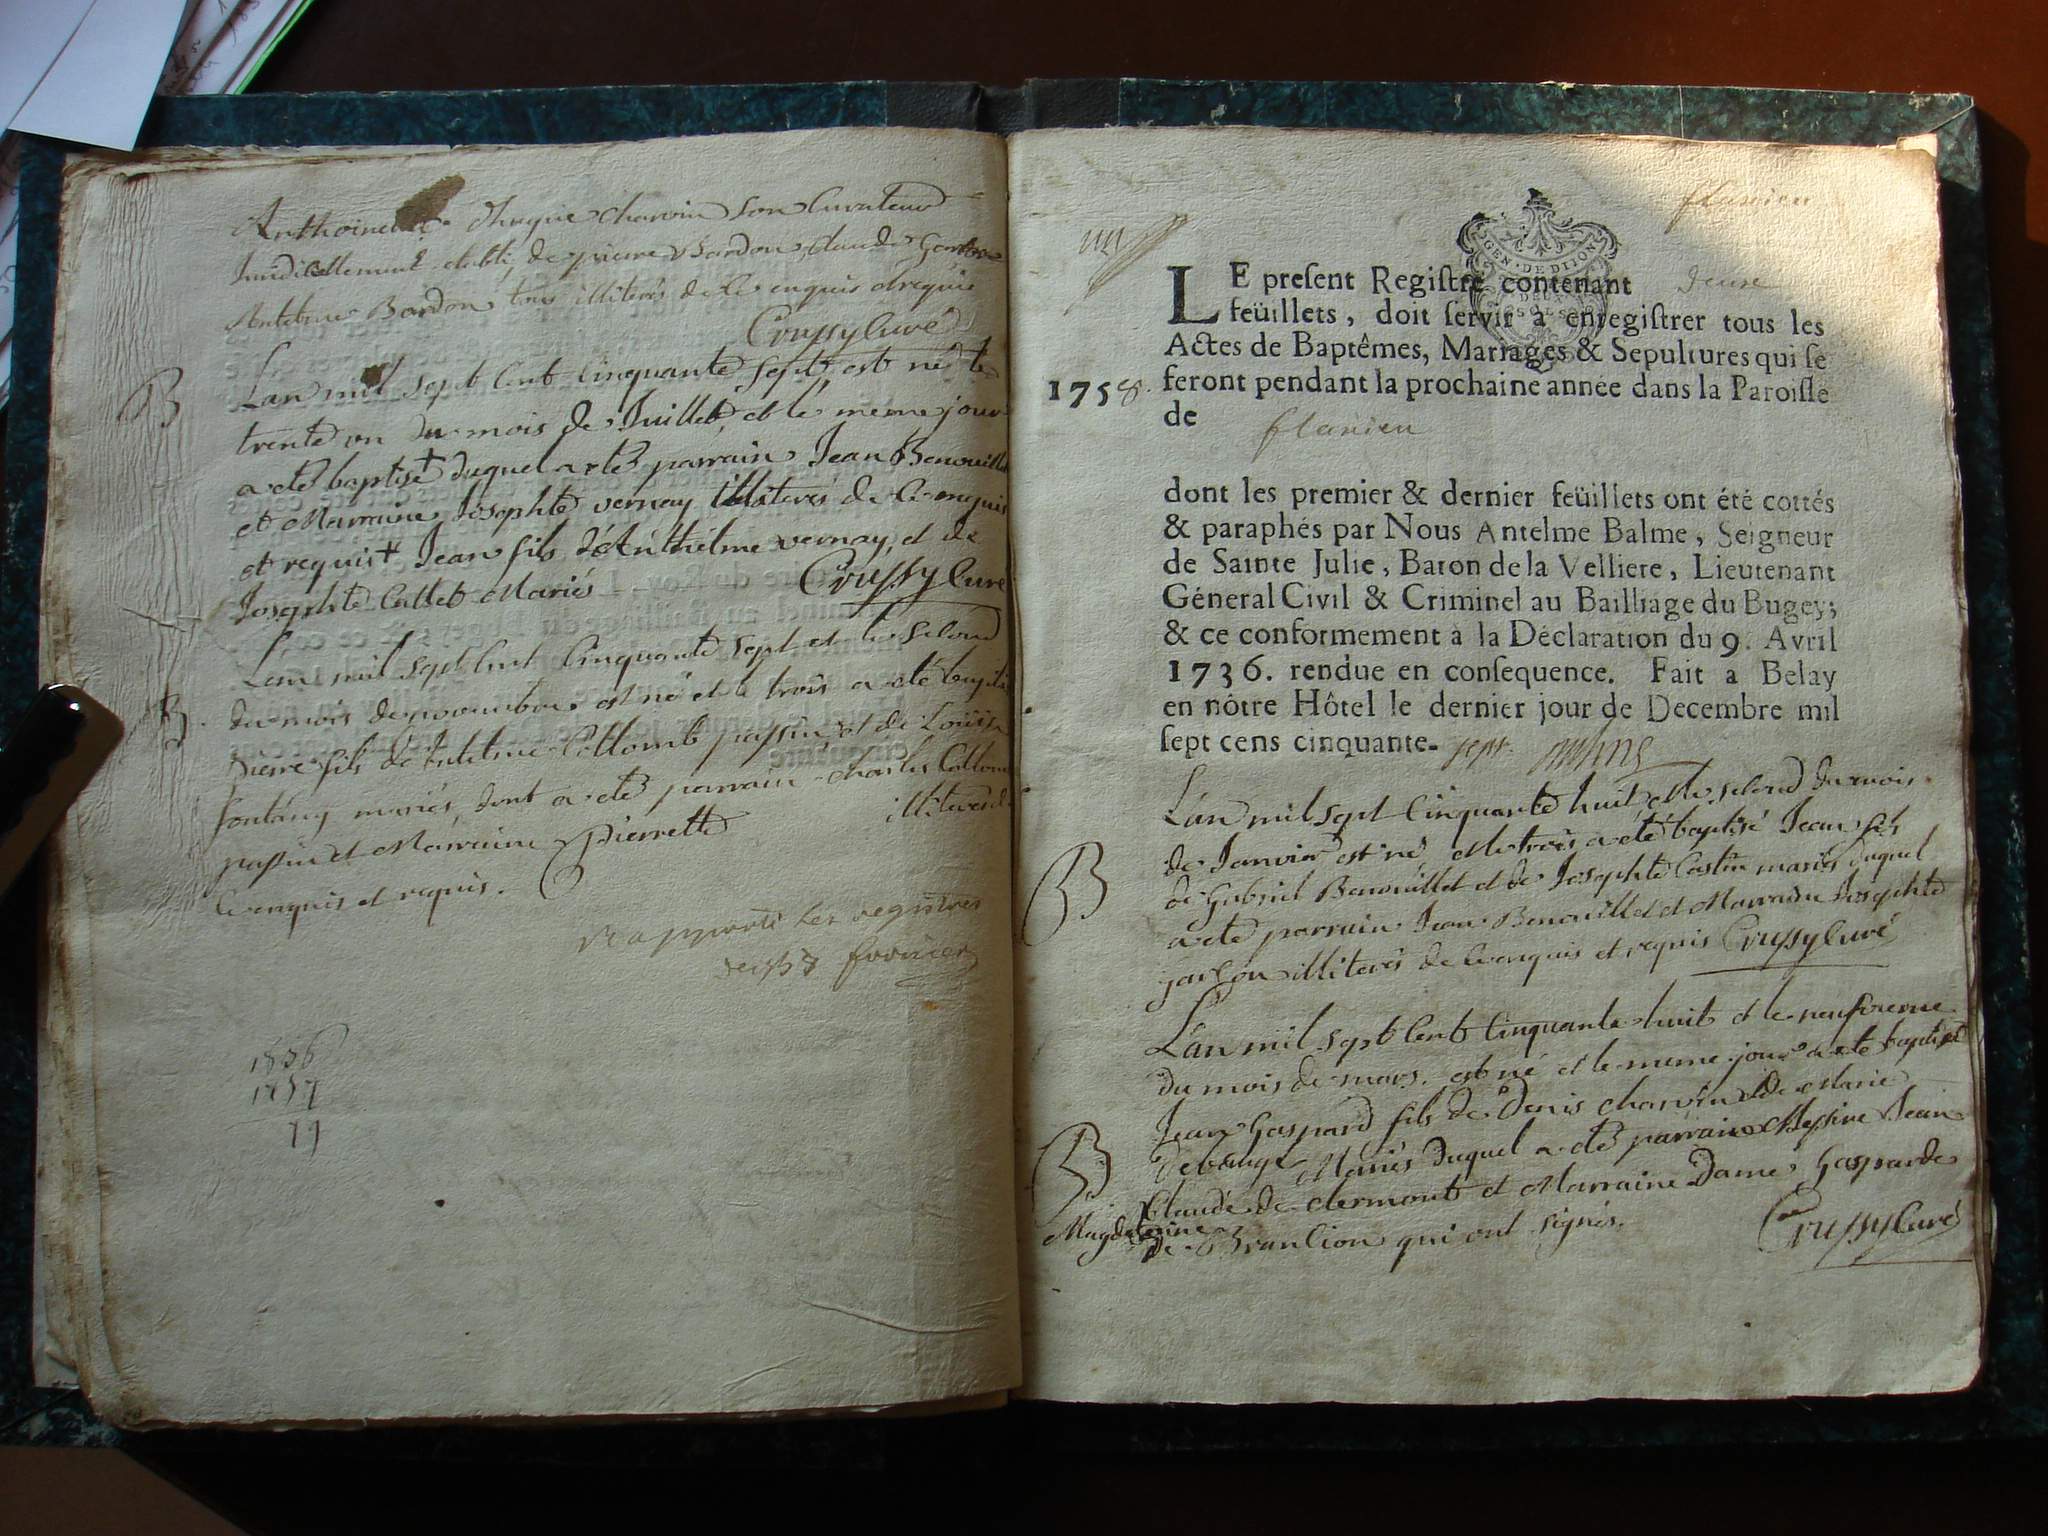 Anthoinette charvin son curateur
établi, de pierre Bardon, Claude
Antelme Bardon tous illiterés de ce enquis et requis
Crussy curé
B
Lan mil sept cent cinquante sept est né le
trente un du mois de Juillet, et le meme jour
a eté baptisé + duquel a eté parrain Jean Benouillet
et Marraine Josephte vernay illiterés de ce enquis
et requis + Jean fils d'Anthelme vernay, et de
Josephte Cullet Mariés Crussy curé
Lan mil sept cent cinquante sept et le second
B.
du mois de novembre est né et le trois a eté baptisé
pierre fils de Antelme Collomb passin et de Louise
mariés, dont a eté parrain charles Collomb
passin et Marraine pierrette illiterés de
ce enquis et requis.
Rapporté les registres
1756
1757
11
flanieu
GEN. DE DIJON
LE preſent Regiſtre contenant
feüillets, doit ſervir à enregiſtrer tous les
Actes de Baptêmes, Mariages & Sepultures qui ſe
1758. feront pendant la prochaine année dans la Paroiſſe
de flanieu
dont les premier & dernier feüillets ont été cottés
& paraphés par Nous Antelme Balme, Seigneur
de Sainte Julie, Baron de la Velliere, Lieutenant
Géneral Civil & Criminel au Bailliage du Bugey;
& ce conformement à la Déclaration du 9. Avril
1736. rendue en conſequence. Fait a Belay
en nôtre Hôtel le dernier jour de Decembre mil
ſept cens cinquante- sept
L'an mil sept cinquante huit et le second du mois
de Janvier est né et le trois a été baptisé Jean fils
B
de Gabriel Benouillet et de Josephte Castin mariés duquel
a eté parrain Jean Benouillet et Marraine Josephte
garçon illiterés de ce enquis et requis Crussy curé
L'an mil sept cent cinquante huit et le neufvieme
du mois de mars est né et le meme jour a eté baptisé
Jean Gaspard fils de Denis charvin et de Marie
B
Mariés duquel a eté parrain Messire Jean
Claude de clermont et Marraine Dame Gasparde
Magdeleine
de Branlion qui ont signés. Crussy curé